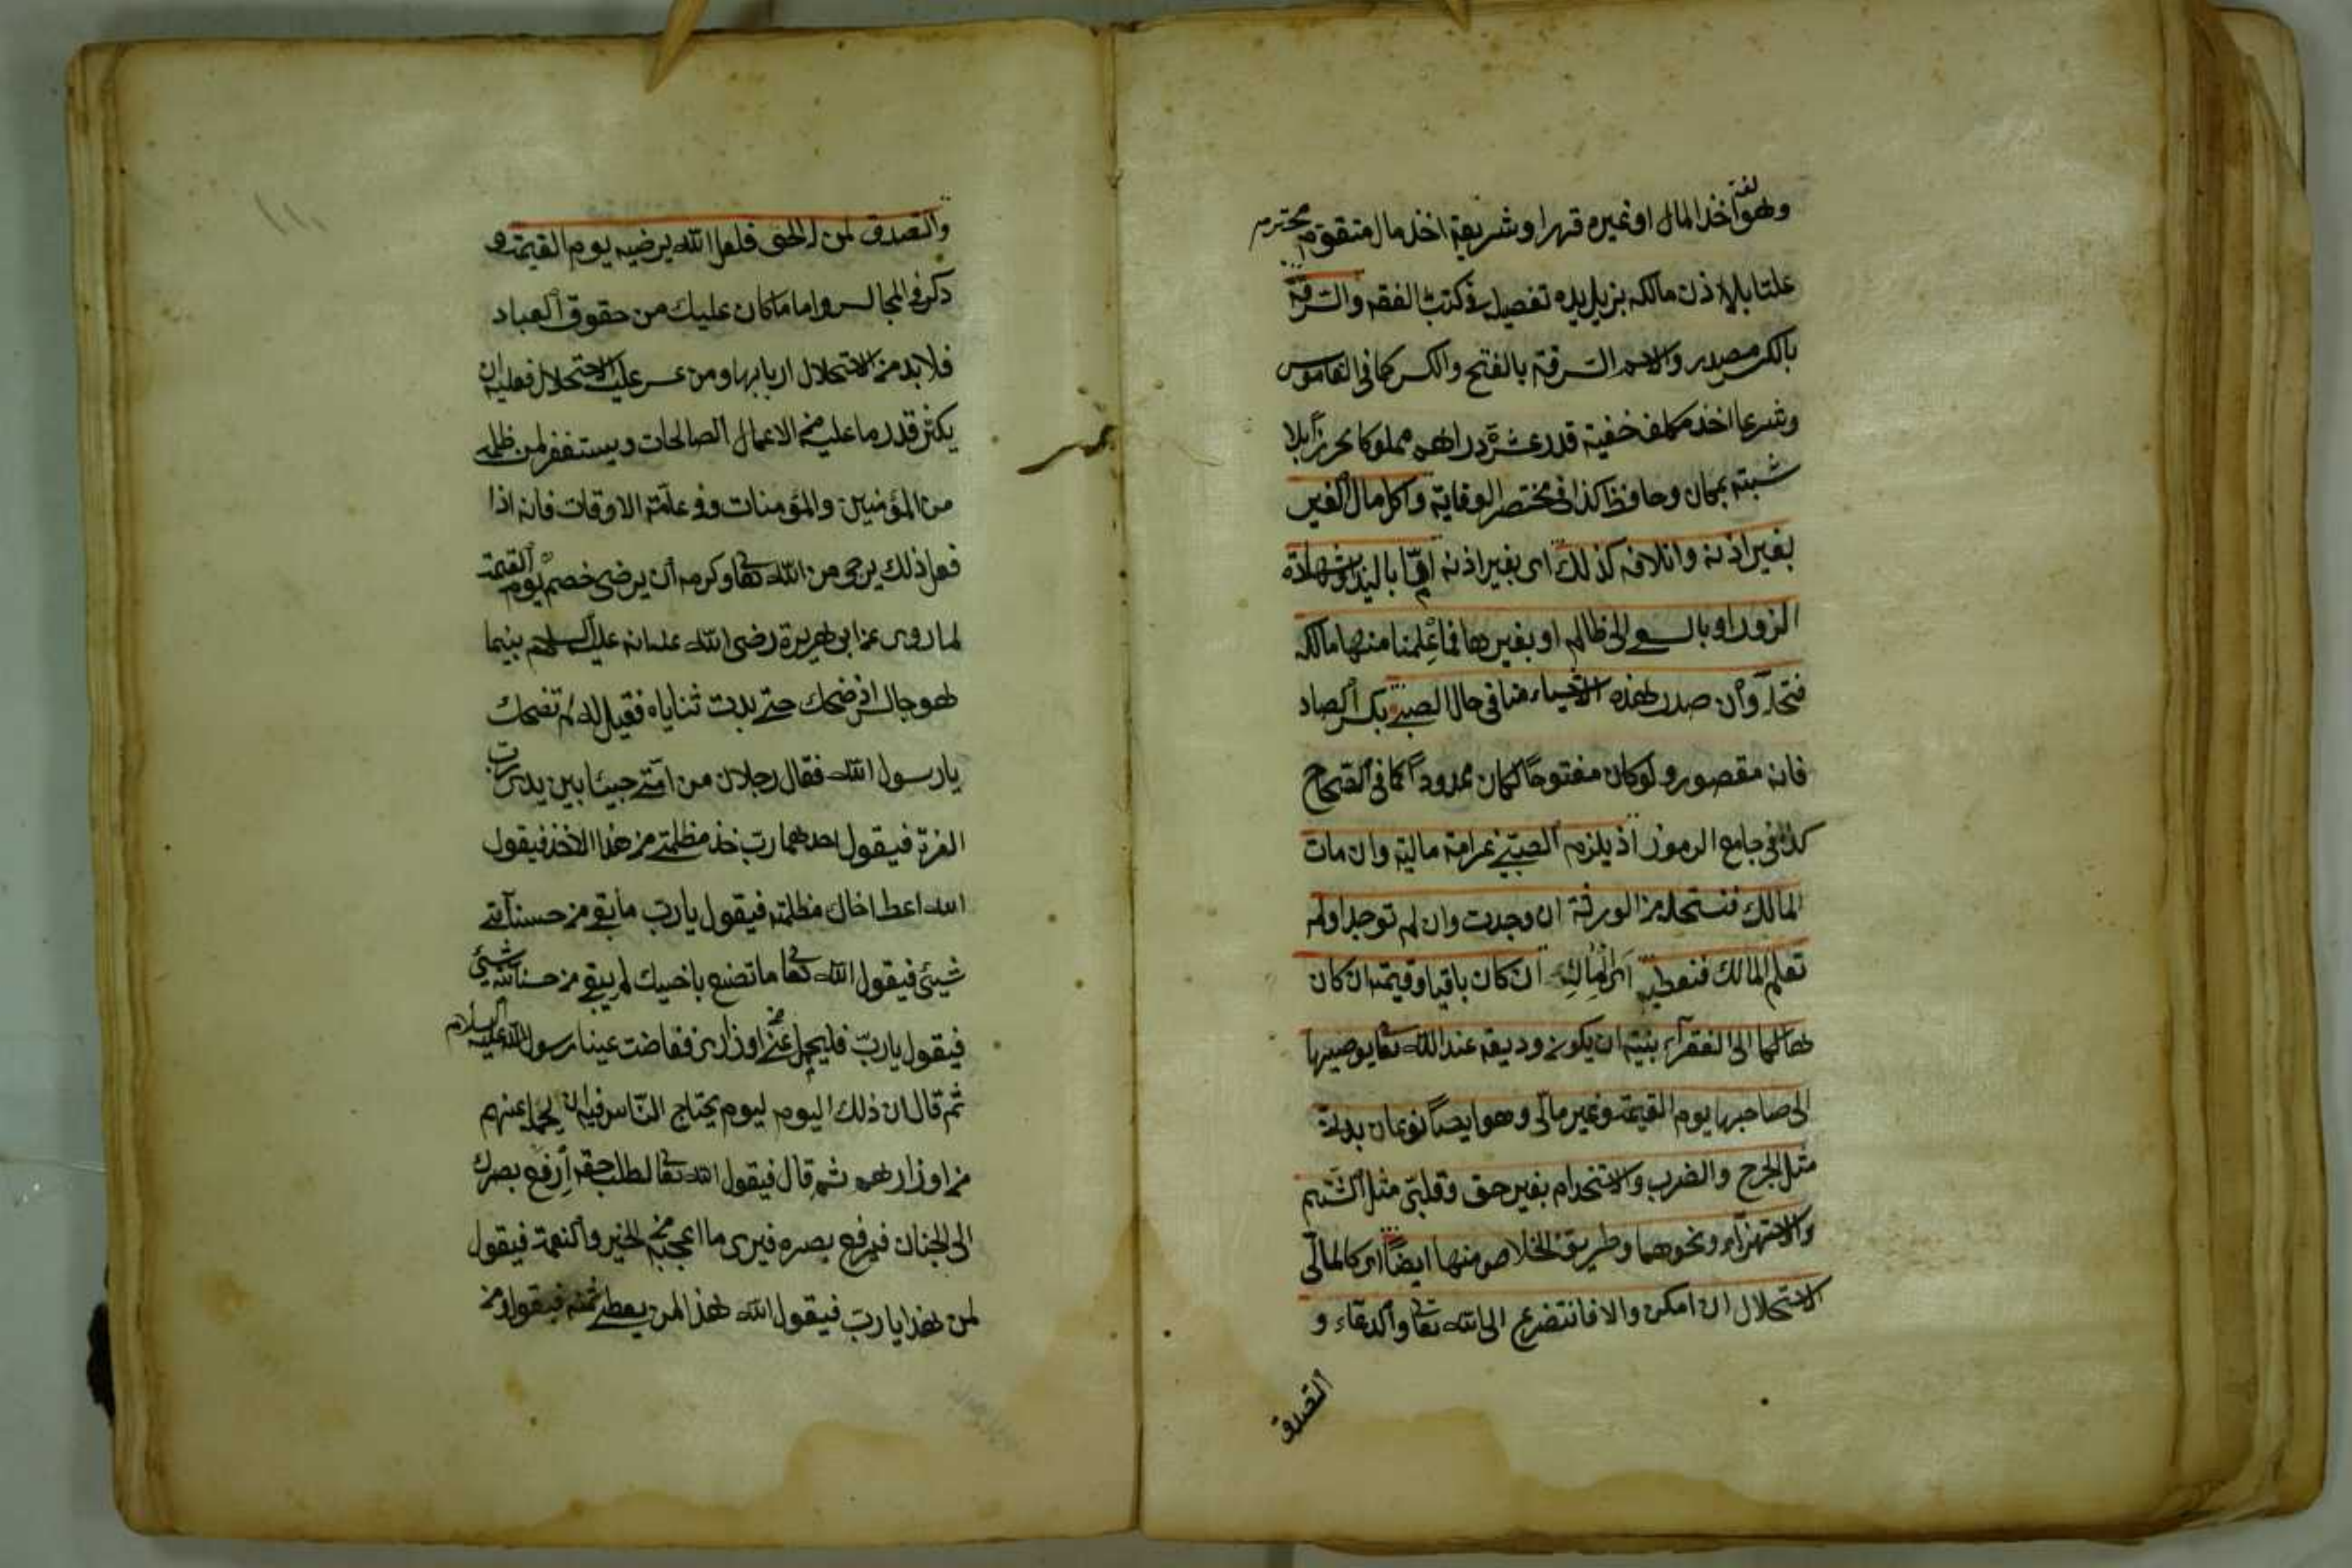 وهو لغة اخذ المال او غيره قهرا وشريعة اخذ مال متقوم محترم
علنا بلا اذن مالكه يزيل يده تفصيله فى كتب الفقه والسرقة
بالكسر مصدر والاسم السرقة بالفتح والكسر كما فى القاموس
وشرعا اخذ مكلف خفية قدر عشرة دراهم مملوكا محرزا بلا
شبهة بمكان وحافظ كذا فى مختصر الوقاية واكل مال الغير
بغير اذنه واتلافه كذلك اى بغير اذنه اما باليد وشهادة
الزور او بالسعى الى ظالم او بغيرها فما علمنا منها مالكه
فتحل وان صدر هذه الاشياء منا فى حال الصبى بكسر الصاد
فانه مقصور ولو كان مفتوحا لكان ممدودا كما فى الصحاح
كذا فى جامع الرموز اذ يلزم الصبى غرامة مالية وان مات
المالك فنستحل من الورثة ان وجدت وان لم توجد او لم
تعلم المالك فنعطيه اى المال ان كان باقيا وقيمته ان كان
هالكا الى الفقراء بنية ان يكون وديعة عند الله تعا يوصيرها
الى صاحبها يوم القيمة وغير مالى وهو ايضا نوعان بدنى
مثل الجرح والضرب والاستخدام بغير حق وقلبى مثل الشتم
والاستهزاء ونحوهما وطريق الخلاص منها ايضا اى كالمالى
الاستحلال ان امكن والا فالتضرع الى الله تعا والدعاء و
التصدق
والتصدق لمن له الحق فلعل الله يرضيه يوم القيمة و
ذكر فى المجالس واما ما كان عليك من حقوق العباد
فلا بد من الاستحلال اربابها ومن عسر عليه الاستحلال فعليه ان
يكثر قدر ما عليه من الاعمال الصالحات ويستغفر لمن ظلمه
من المؤمنين والمؤمنات فى عامة الاوقات فانه اذا
فعل ذلك يرجى من الله تعا وكرمه ان يرضى خصمه يوم القيمة
لما روى عن ابى هريرة رضى الله عنه انه عليه السلام بينما
هو جالس اذ ضحك حتى بدت ثناياه فقيل له لم تضحك
يا رسول الله فقال رجلان من امتى جيئا بين يدى رب
العزة فيقول احدهما رب خذ مظلمتى من هذا الاخذ فيقول
الله اعط اخاك مظلمته فيقول يا رب ما بقى من حسناتى
شيئ فيقول الله تعا ما تصنع باخيك لم يبق من حسناته شيئ
فيقول يا رب فليحمل عنى من اوزارى ففاضت عينا رسول الله عليه السلام
ثم قال ان ذلك اليوم ليوم يحتاج الناس فيه ان يحمل عنهم
من اوزارهم ثم قال فيقول الله تعا لطالب حقه ارفع بصرك
الى الجنان فيرفع بصره فيرى ما اعجبه من الخير والنعمة فيقول
لمن هذا يا رب فيقول الله هذا لمن يعطى ثمنه فيقول ومن